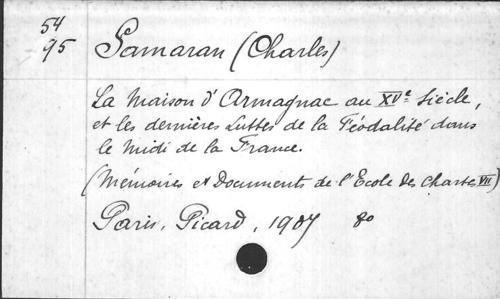 54
95
Samaran (Charles)
La Maison d'Armagnac au XVe Siècle,
et les dernières Luttes de la Féodalité dans
le Midi de la France.
(Mémoires et Documents de l'Ecole des Chartes VII)
Paris, Picard, 1907 8o